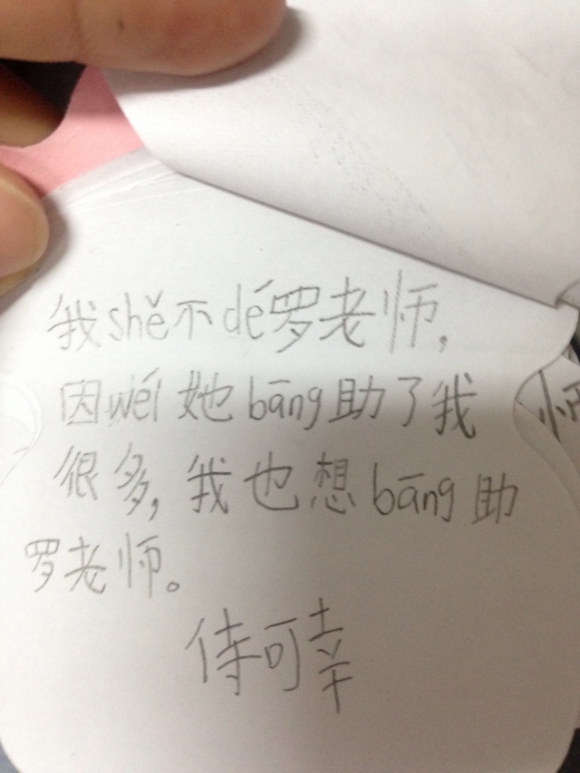 我shě不dé罗老师，
因wéi她bāng助了我
很多，我也想bāng助
罗老师。
侍可幸